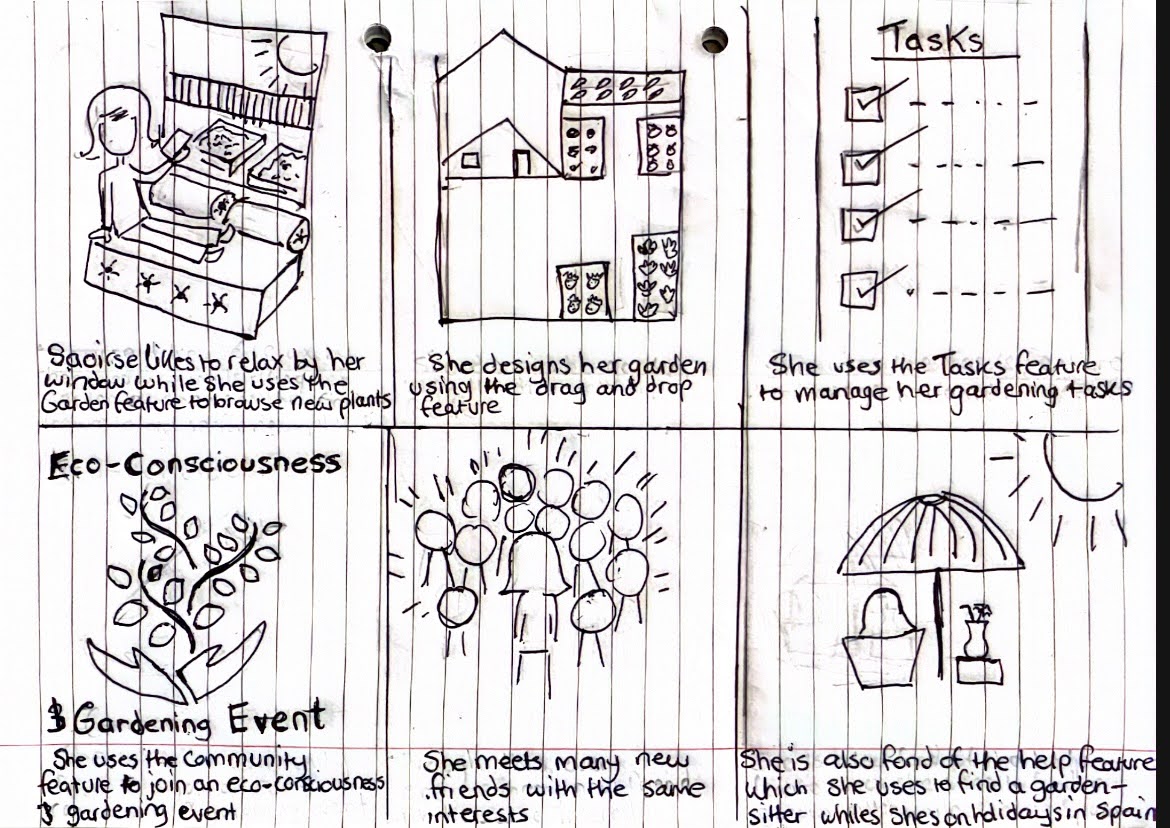 Saoirse likes to relax by her
window while she uses the
Garden feature to browse new plants
She designs her garden
using the drag and drop
feature
Tasks
She uses the Tasks feature
to manage her gardening tasks
Eco-Consciousness
& Gardening Event
She uses the Community
feature to join an eco-consciousness
& gardening event
She meets many new
friends with the same
interests
She is also fond of the help feature
which she uses to find a garden-
sitter whiles shes on holidays in Spain